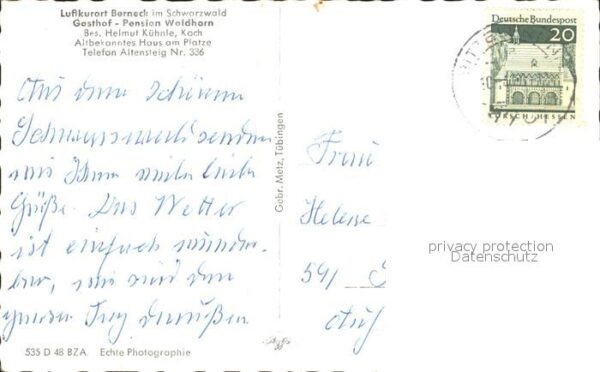 Luftkurort Berneck im Schwarzwald
Gasthof - Pension Waldhorn
Bes. Helmut Kühnle, Koch
Altbekanntes Haus am Platze
Telefon Altensteig Nr. 336
Aus dem schönen
Schwarzwald senden
wir Ihnen viele liebe
Grüße. Das Wetter
ist einfach wunder-
bar, wir sind den
ganzen Tag draußen
535 D 48 BZA. Echte Photographie
Gebr. Metz, Tübingen
Deutsche Bundespost
20
LORSCH/HESSEN
Frau
Helene
59/
privacy protection
Datenschutz